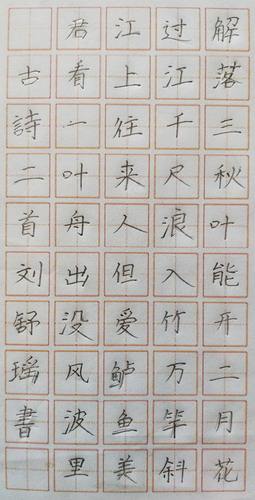 解落三秋叶能开二月花
过江千尺浪入竹万竿斜
江上往来人但爱鲈鱼美
君看一叶舟出没风波里
古詩二首刘舒瑤書